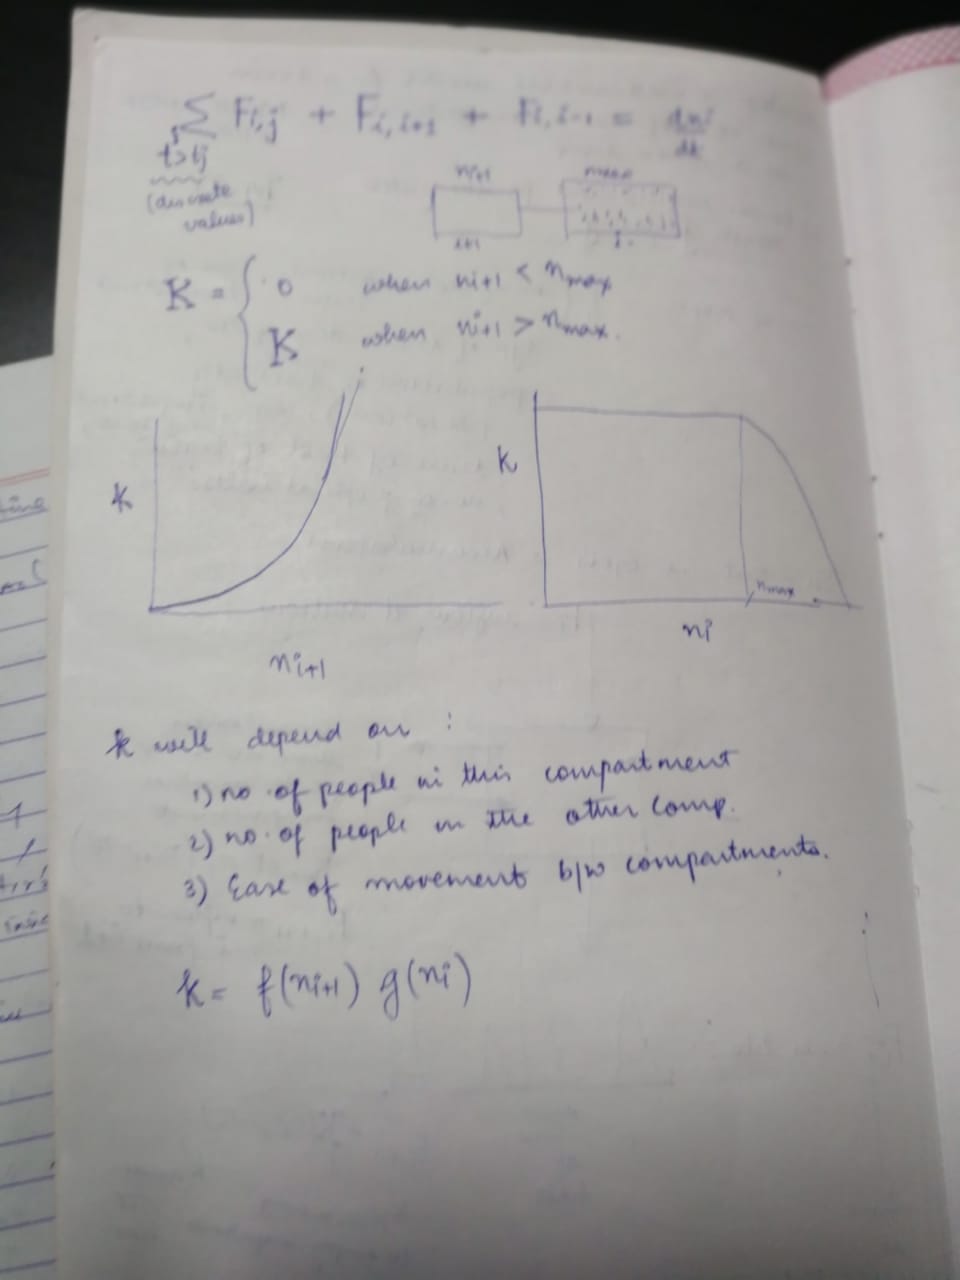 Σ Fi,j + Fi,i+1 + Fi,i-1 = dni/dt
t>tj
(discrete
values)
ni+1 nmax
i+1 i
K = { 0 when ni+1 < nmax
K when ni+1 > nmax.
k
ni+1
k
nmax
ni
k will depend on :
1) no. of people in this compartment
2) no. of people in the other comp.
3) Ease of movement b/w compartments.
k = f(ni+1) g(ni)